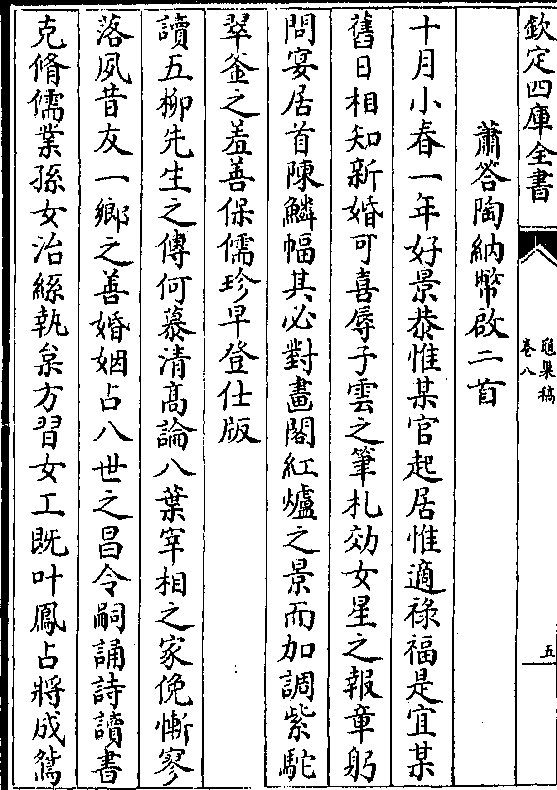 欽定四庫全書
蕭答陶納幣啟二首
十月小春一年好景恭惟某官起居惟適祿福是宜某
舊日相知新婚可喜辱子雲之筆札効女星之報章躬
問宴居首陳鱗幅其必對畫閣紅爐之景而加調紫駝
翠釜之羞善保儒珍早登仕版
讀五柳先生之傳何慕清高論八葉宰相之家俛慚寥
落夙昔友一鄉之善婚姻占八世之昌令嗣誦詩讀書
克脩儒業孫女治絲執枲方習女工既叶鳳占將成鴛
巢稿
卷八
五